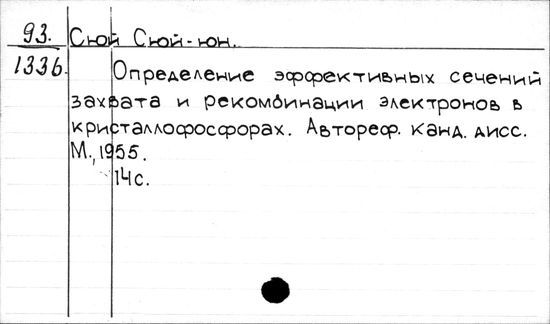 93. Сюй Сюй-юн.
1336. Определение эффективных сечений
захвата и рекомбинации электронов в
кристаллофосфорах. Автореф. канд. дисс.
М., 1955.
14с.